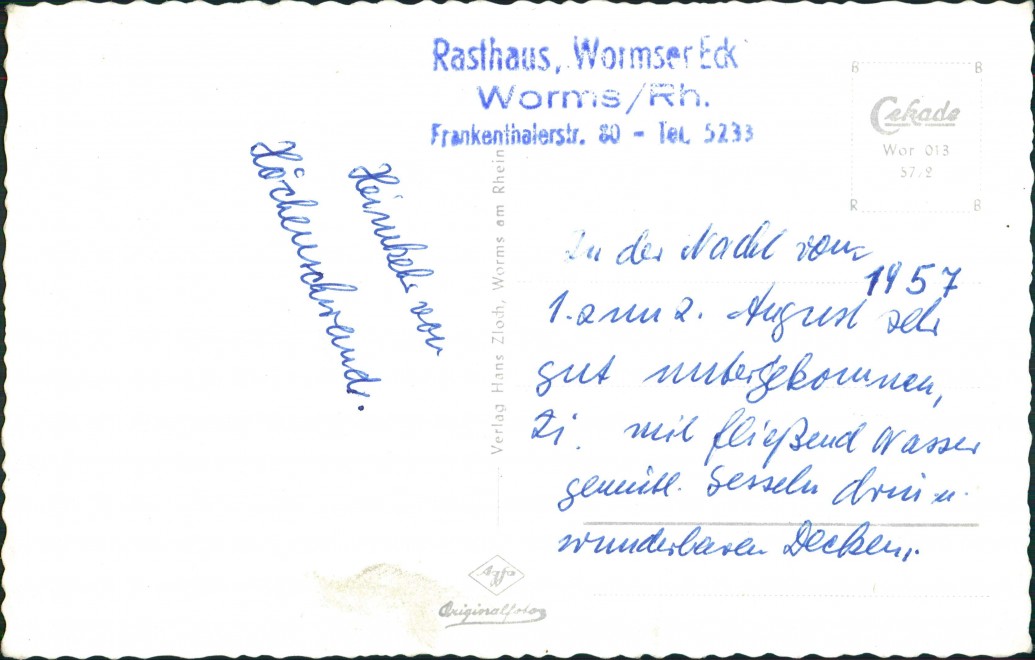 Rasthaus, Wormser Eck
Worms/Rh.
Frankenthalerstr. 80 - Tel. 5233
Cekade
Wor 013
57/2
B B
R B
Heimkehr von
Höchenschwand.
Verlag Hans Zloch, Worms am Rhein
In der Nacht vom
1957
1. zum 2. August sehr
gut untergekommen,
Zi. mit fließend Wasser
gemütl. Sesseln drin u.
wunderbaren Decken.
Agfa
Originalfoto